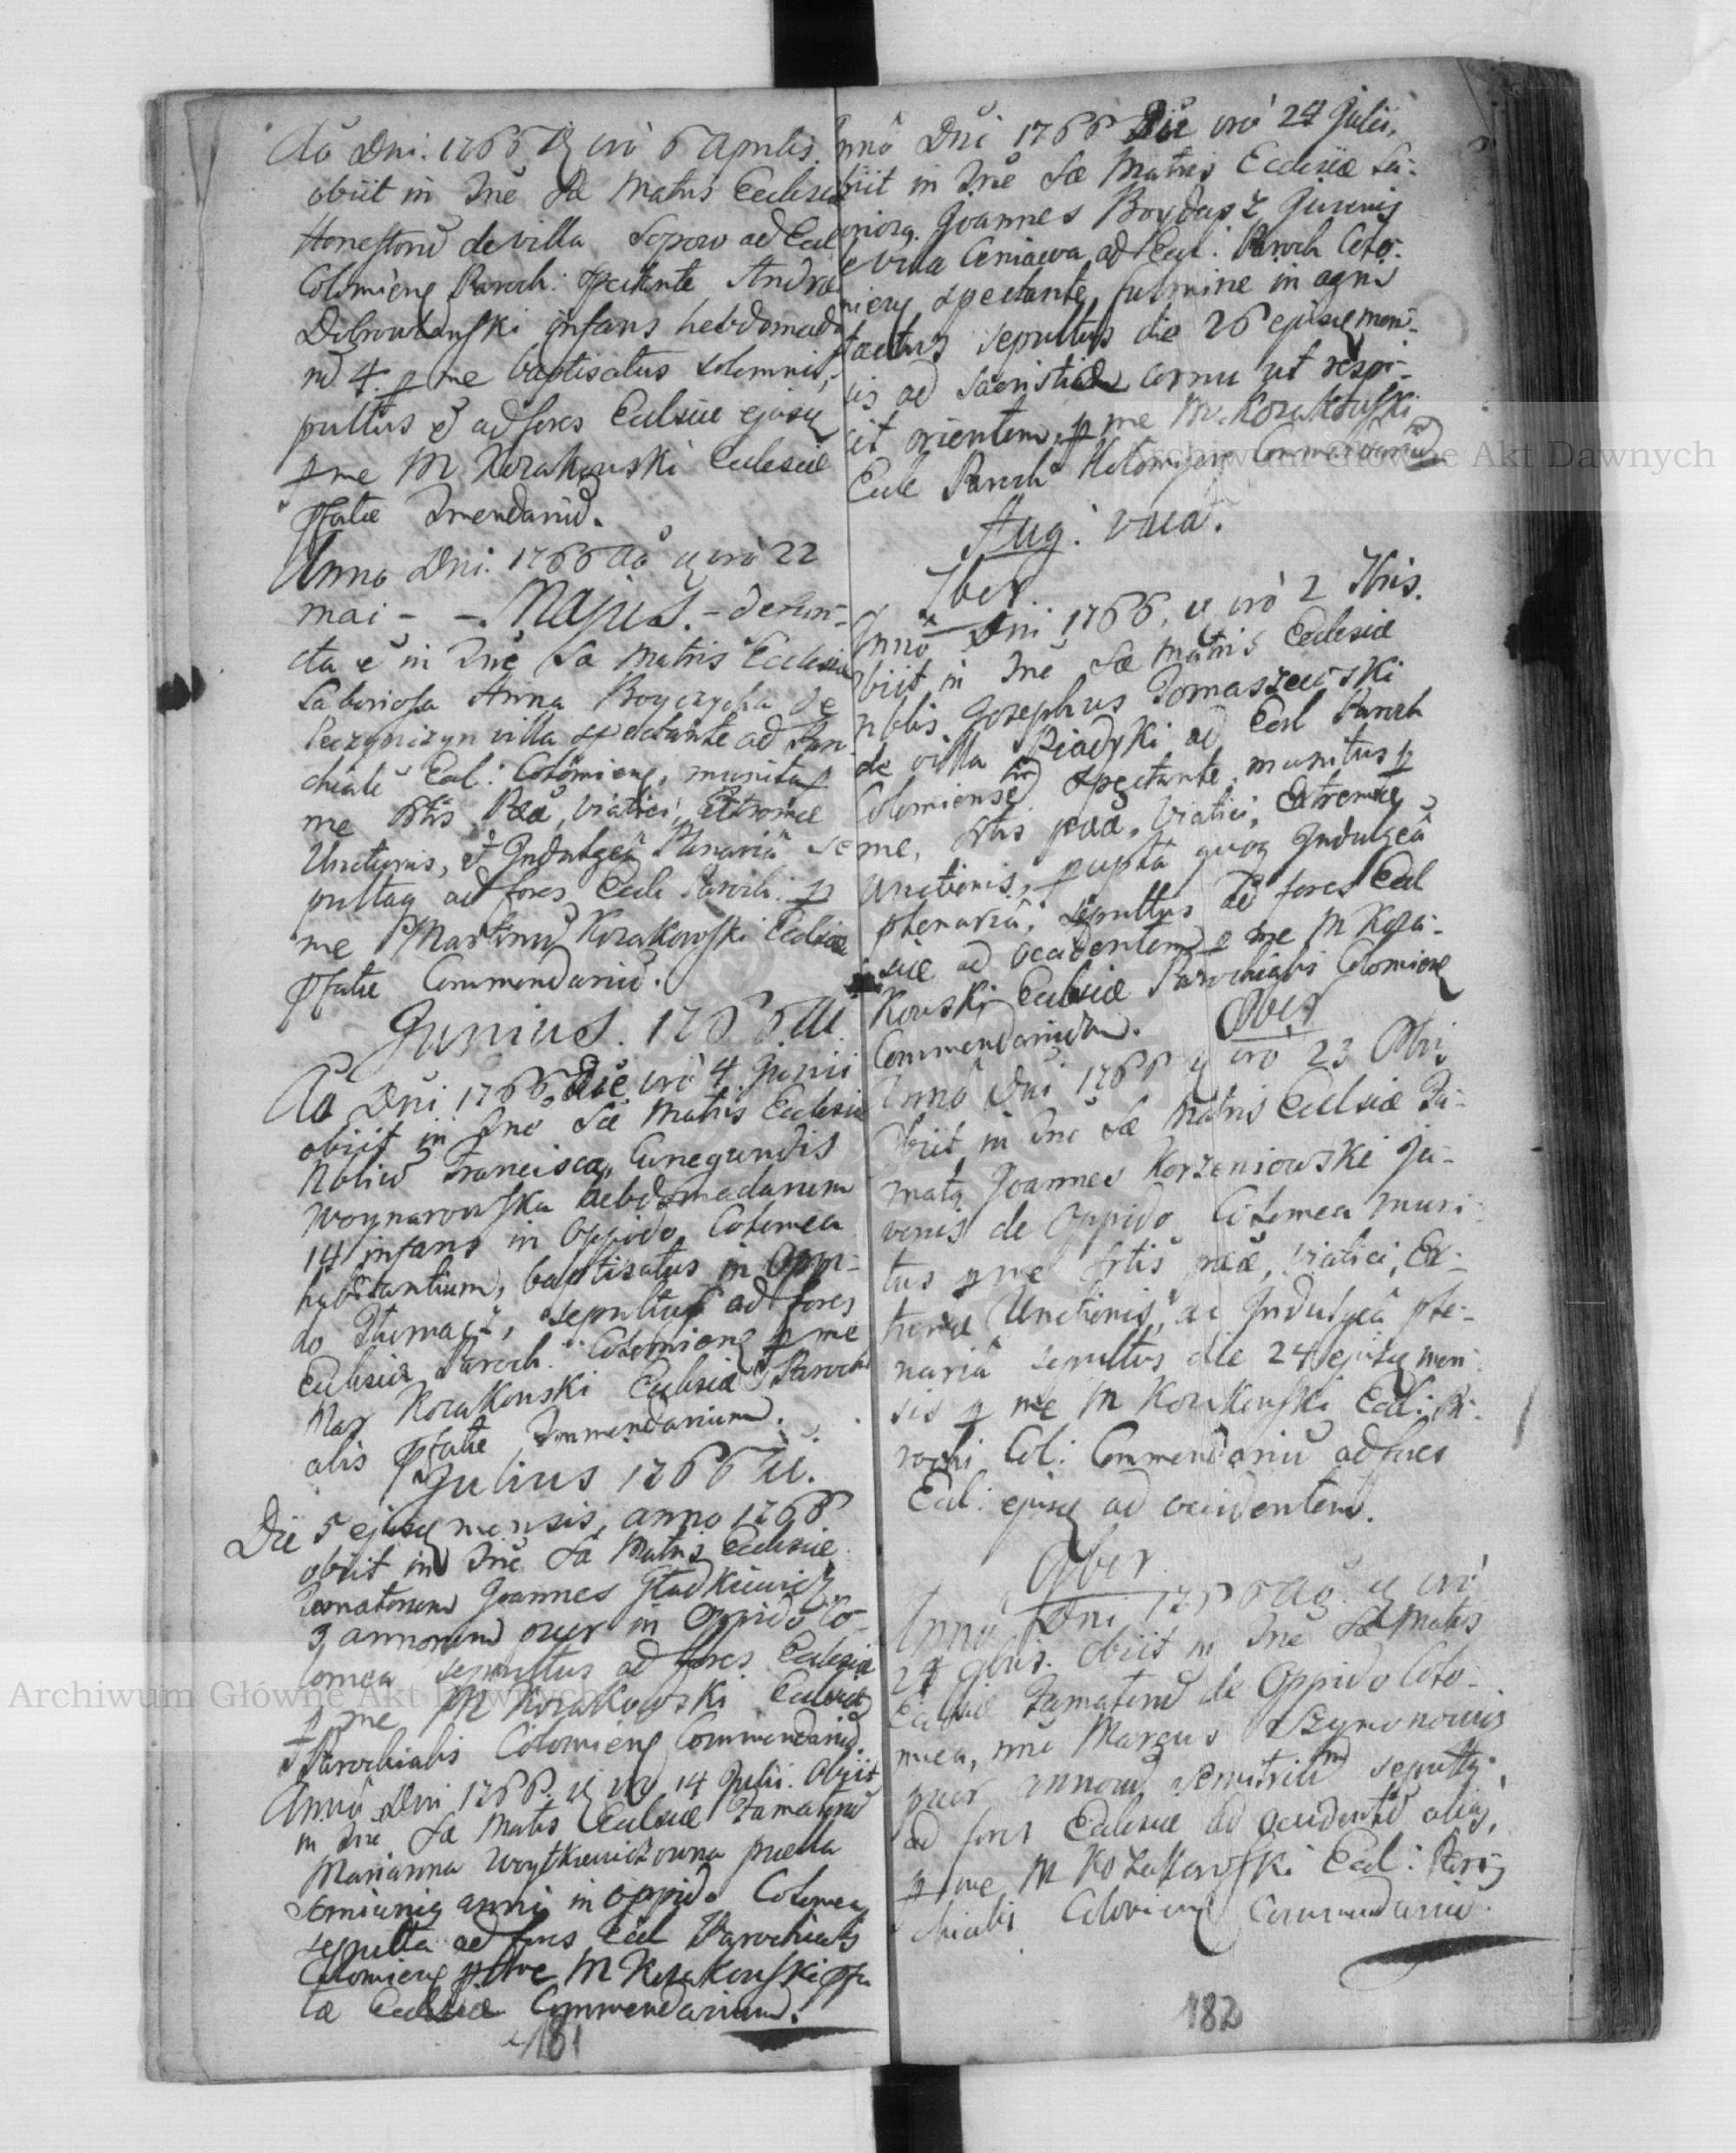 Aō Dni. 1766 Aō vrō 6 Aprilis.
obiit in Dnē Sæ Matris Ecclesiæ
Honestorū de villa Sopow ad Eccl
Colomieng Paroch: spectante Andrē
Dobrowlanski infans hebdomada
rū 4. p me baptisatus solemnis, se
pultus ē ad fores Ecclsiæ ejusq
p me M Kozakowski Ecclesiæ
pfatæ Cmendariū.
Anno Dni. 1766 Aō vrō 22
mai - -. Majus. - defun-
cta ē in Dnē Sæ Matris Ecclesiæ
Laboriosa Anna Boyczycha de
villa spectante ad Paro
chialē Eccl: Colomieng, munita p
me Sctis Pææ, Viatici, Extremæ
Unctionis, et Indulgeā Plenariā se
pultaq ad fores Eccle Paroch: p
me Martinū Kozakowski Ecclsiæ
pfatæ Commendariū.
Junius. 1766 Aō.
Aō Dni 1766 Die vrō 4 Junii
obiit in Dnō Sæ Matris Ecclesiæ
Nobiliū Francisca, Cunegundis
Woynarowska hebdomadarum
14 infans in Oppido Colomea
habitantium, baptisatus in Oppi-
do Tlumacz, sepultus ad fores
Ecclesiæ Paroch. Colomieng p me
Mar Kozakowski Ecclesiæ Parochi
alis pfatæ Cmmendarium.
Julius 1766 Aō.
Die 5 ejusq mensis, anno 1766
obiit in Dnē Sæ Matris Ecclesiæ
Famatorum Joannes Gładkiewicz
3 annorum puer in Oppido Co-
lomea sepultus ad fores Ecclesiæ
p me M Kozakowski Ecclesiæ
Parochialis Colomieng Commendariū.
Annō Dni 1766. vrō 14 Julii. Obiit
in Dnē Sæ Matris Ecclsiæ Famatorū
Marianna Woytkiewiczowna puella
Semiunig anni in oppido Colomea
sepulta ad fores Eccl Parochialis
Colomieng p me M Kozakowski pfa
tæ Ecclesiæ Commendarium.
181
Annō Dni 1766 Die vrō 24 Julii,
obiit in Dnē Sæ Matris Ecclesiæ La-
boriorq. Joannes Boydasz Juvenis
de villa Ceniawa ad Eccl: Paroch Colo-
mieng spectante, fulmine in agris
tactus sepultus die 26 ejusq men-
sis ad Sacristiæ cornu ut respi-
cit orientem, p me M. Kozakowski
Eccle Paroch Kolomyen Commendariū
Aug: vacat.
7ber.
Annō Dni 1766, vrō 2 7bris.
obiit in Dnē Sæ Matris Ecclesiæ
nblis Josephus Tomaszewski
de villa Piadyki ad Eccl Paroch
Colomiensē spectante, munitus p
me, Sctis pææ, Viatici, Extremæ
Unctionis, pcepta quoq Indulgeā
plenariā, sepultus ad fores Eccl
siæ ad occidentem p me M Koza-
kowski Ecclesiæ Parochialis Colomieng
Commendarium. 8ber
Annō Dni 1766 vrō 23 8bris
obiit in Dnē Sæ Matris Ecclsiæ Fa-
matq Joannes Korzeniowski Ju-
venis de Oppido Colomea muni-
tus p me Sctis pææ, Viatici, Ex-
tremæ Unctionis, ac Indulgeā ple-
nariā sepultus die 24 ejusq men-
sis p me M Kozakowski Eccl: Pa-
rochi Col: Commendariū ad fores
Eccl: ejusq ad occidentem.
9ber
Annō Dni 1766 Aō vrō
24 9bris. Obiit in Dnē Sæ Matris
Ecclsiæ Famatorū de Oppido Colo-
mea, Marcus Szymonowicz
puer annorū sepultq
ad fores Ecclesiæ ad occidentē
p me M Kozakowski Eccl: Paro
chialis Colomieng Commendariū.
182
Archiwum Główne Akt Dawnych
Archiwum Główne Akt Dawnych